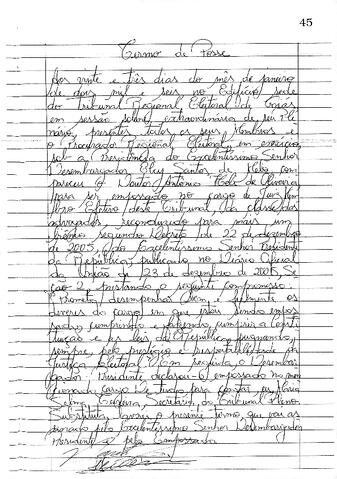 45
Termo de Posse
Aos vinte e três dias do mês de janeiro
de dois mil e seis no Edifício sede
do Tribunal Regional Eleitoral de Goiás,
em sessão solene extraordinária de seu Ple-
nário, presentes todos os seus Membros e
o Procurador Regional Eleitoral em exercício,
sob a Presidência do Excelentíssimo Senhor
Desembargador Elcy Santos de Melo, com-
pareceu o Doutor Antônio de Oliveira
para ser empossado no cargo de Juiz Mem-
bro Efetivo deste Tribunal, da classe dos
advogados, reconduzido para mais um
biênio segundo Decreto de 22 de dezembro
de 2005, do Excelentíssimo Senhor Presidente
da República, publicado no Diário Oficial
da União de 23 de dezembro de 2005, Se-
ção 2, prestando o seguinte compromisso:
Prometo desempenhar bem e fielmente os
deveres do cargo em que estou sendo empos-
sado, cumprindo e fazendo cumprir a Consti-
tuição e as leis da República, pugnando
sempre pelo prestígio e respeitabilidade da
Justiça Eleitoral. Em seguida, o Desembar-
gador Presidente declarou-o empossado no
cargo. De tudo para constar eu, Maria
Secretária do Tribunal Pleno
Substituta, lavrei o presente termo, que vai as-
sinado pelo Excelentíssimo Senhor Desembargador
Presidente e pelo Empossado.